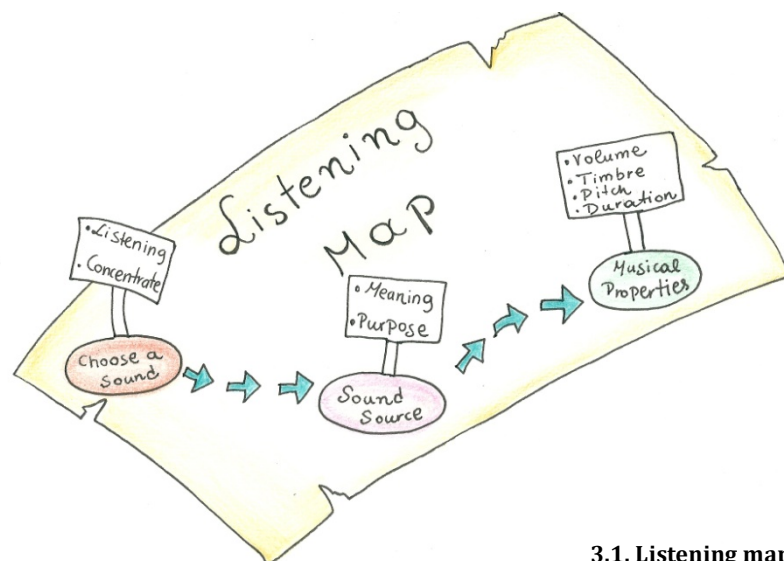 Listening
Map
• Listening
• Concentrate
Choose a
Sound
• Meaning
• Purpose
Sound
Source
• Volume
• Timbre
• Pitch
• Duration
Musical
Properties
3.1. Listening map